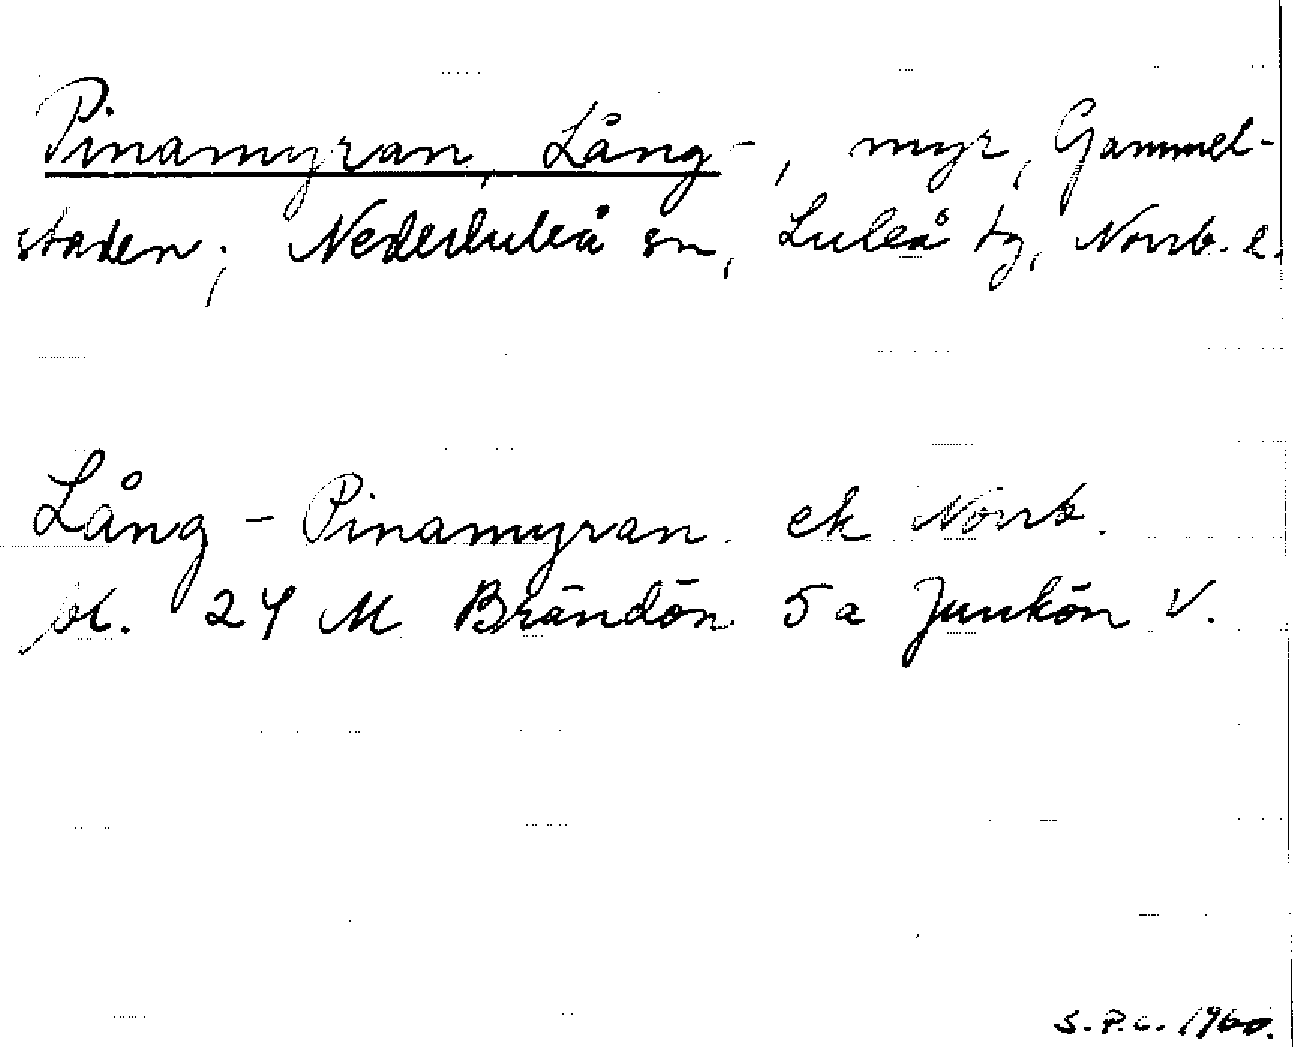 Pinamyran, Lång-, myr, Gammel-
staden; Nederluleå sn, Luleå tg, Norrb. l.
Lång-Pinamyran ek Norrb.
bl. 24 M Brändön 5a Junkön V.
S.P.C. 1960.